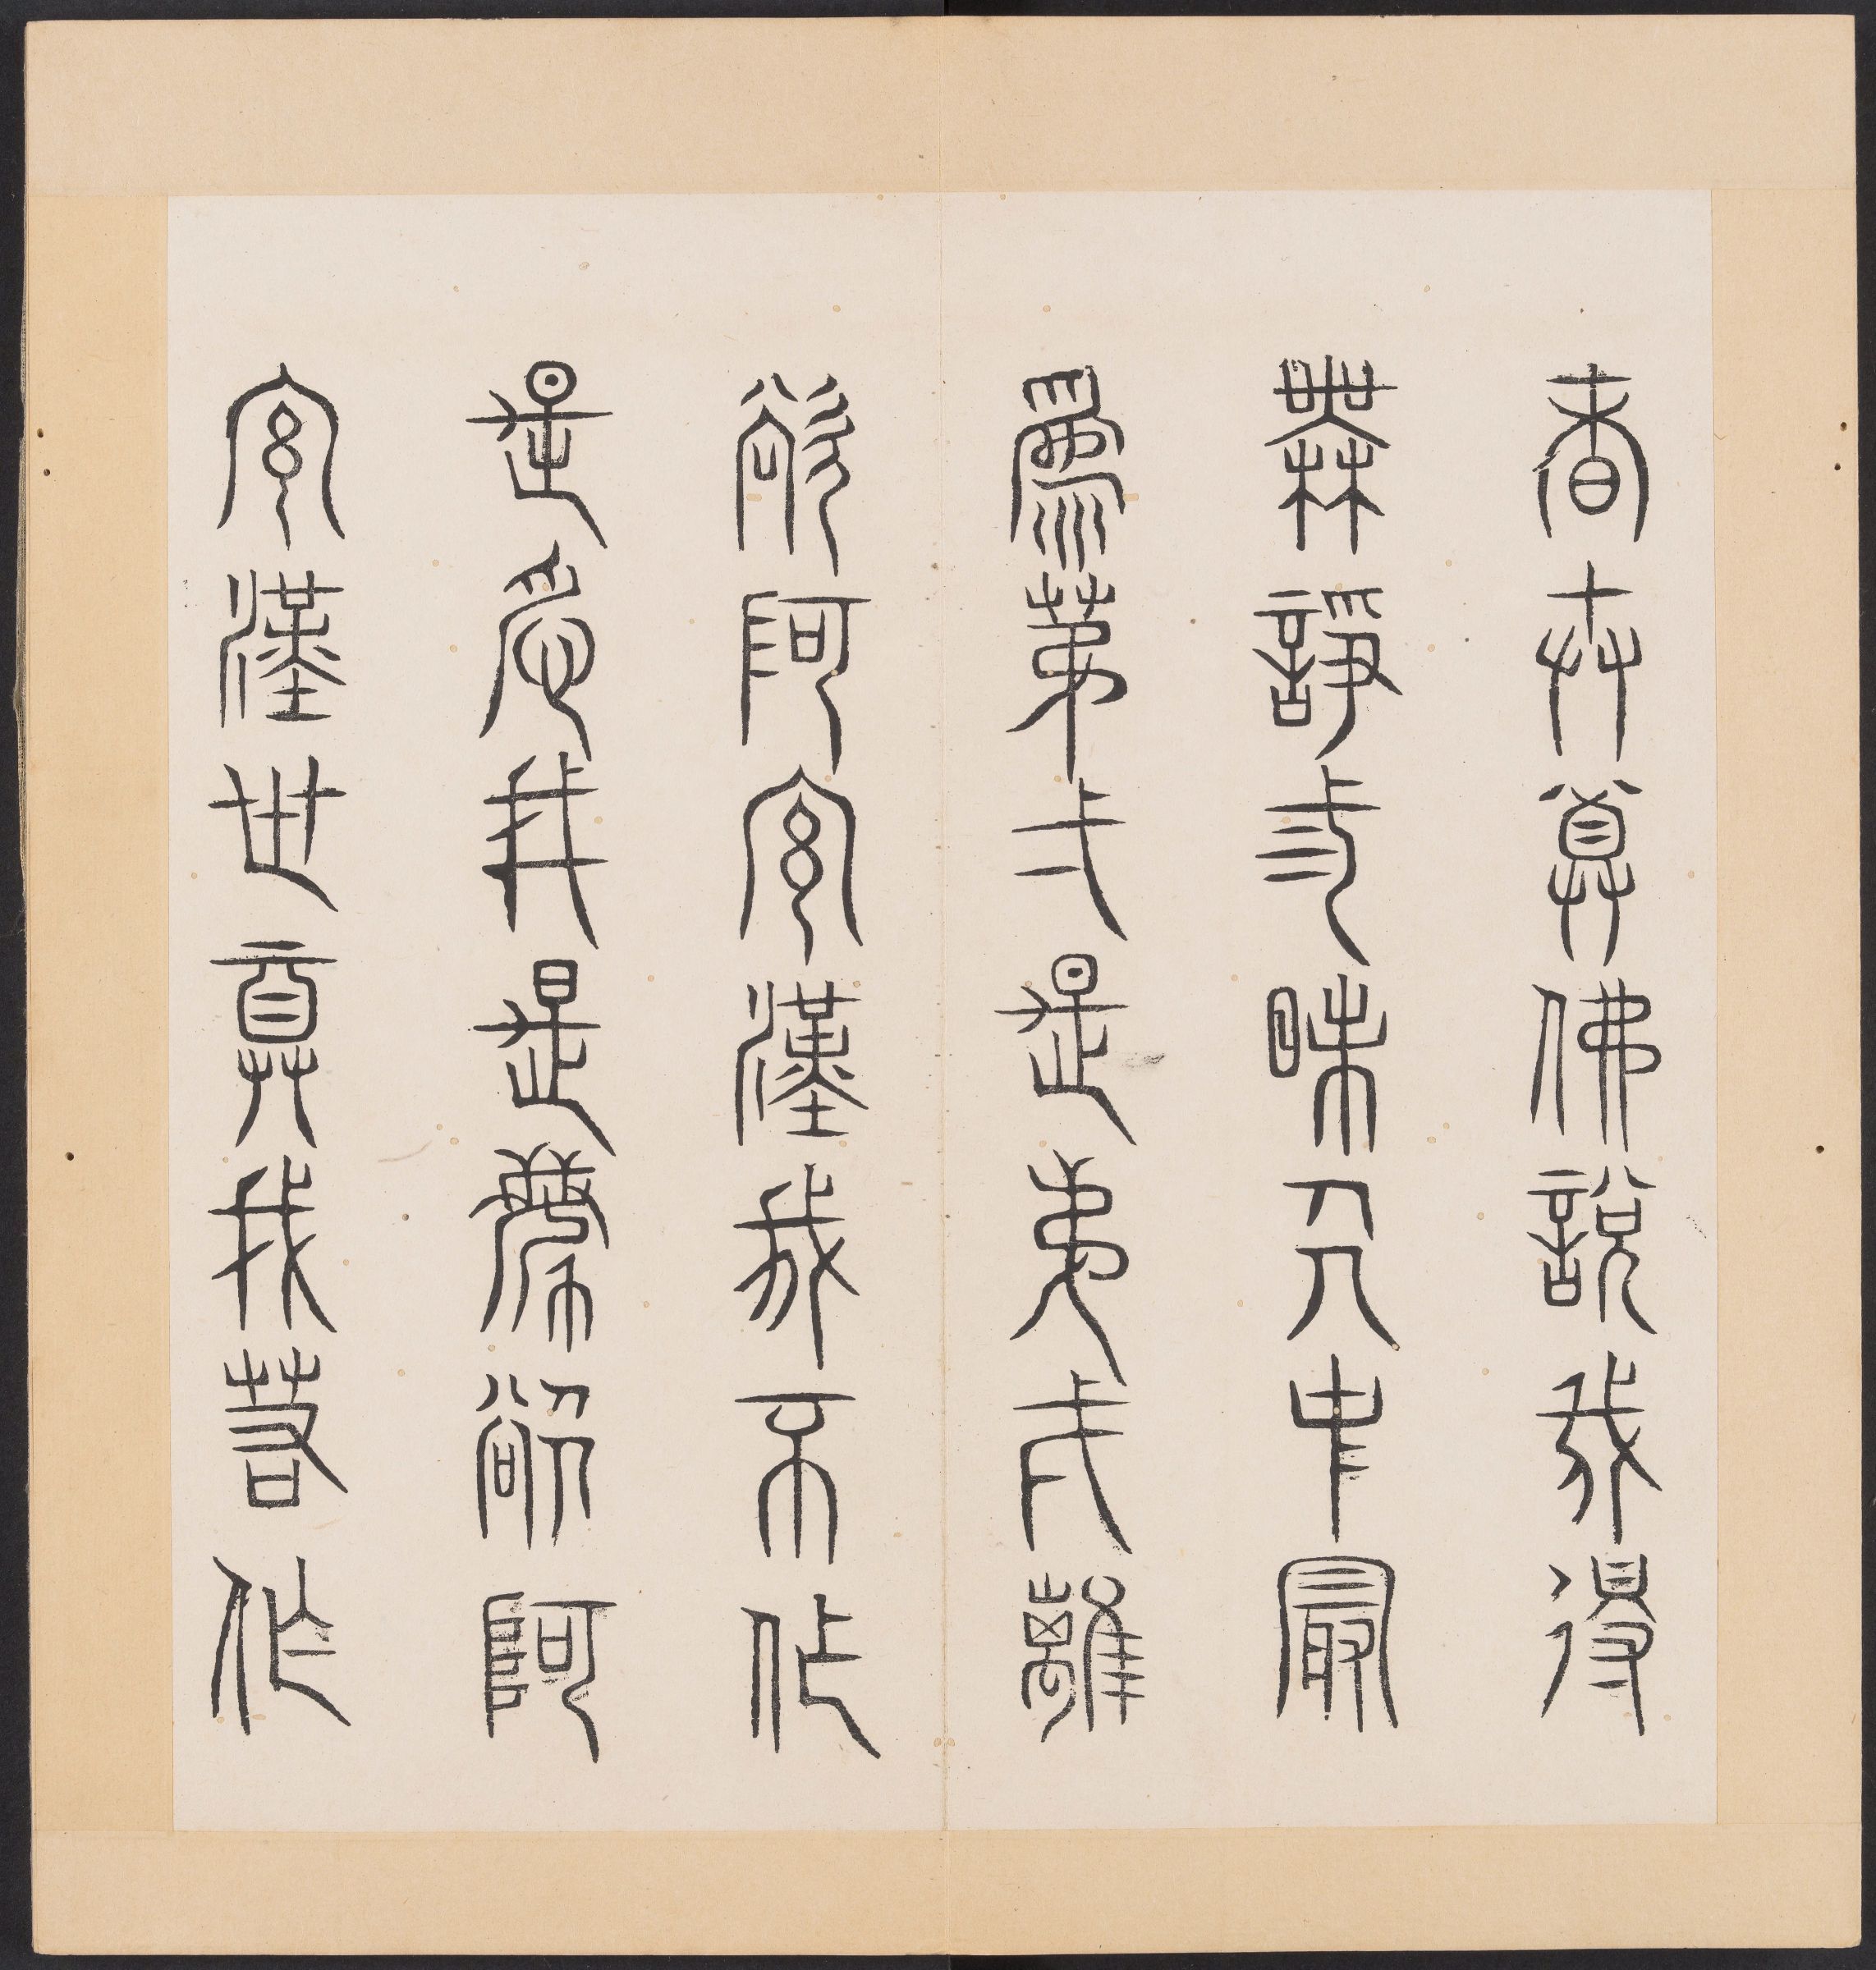 者世尊佛說我得
無諍三昧人中最
為第一是第一離
欲阿羅漢我不作
是念我是離欲阿
羅漢世尊我若作